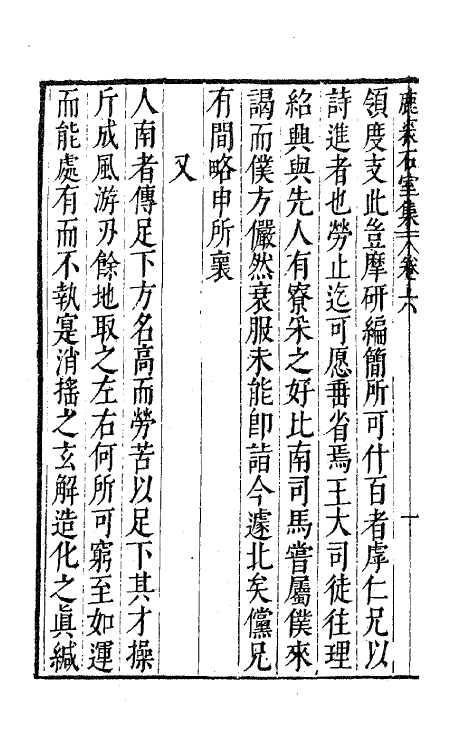 鹿裘石室集 卷六
一
領度支此豈摩研編簡所可什百者虖仁兄以
詩進者也勞止迄可愿畨省焉王大司徒往理
紹興與先人有寮寀之好比南司馬嘗屬僕來
謁而僕方儼然衰服未能卽詣今遽北矣儻兄
有間略申所襄
又
人南者傳足下方名高而勞苦以足下其才操
斤成風游刃餘地取之左右何所可窮至如運
而能處有而不執寔消搖之玄解造化之眞緘